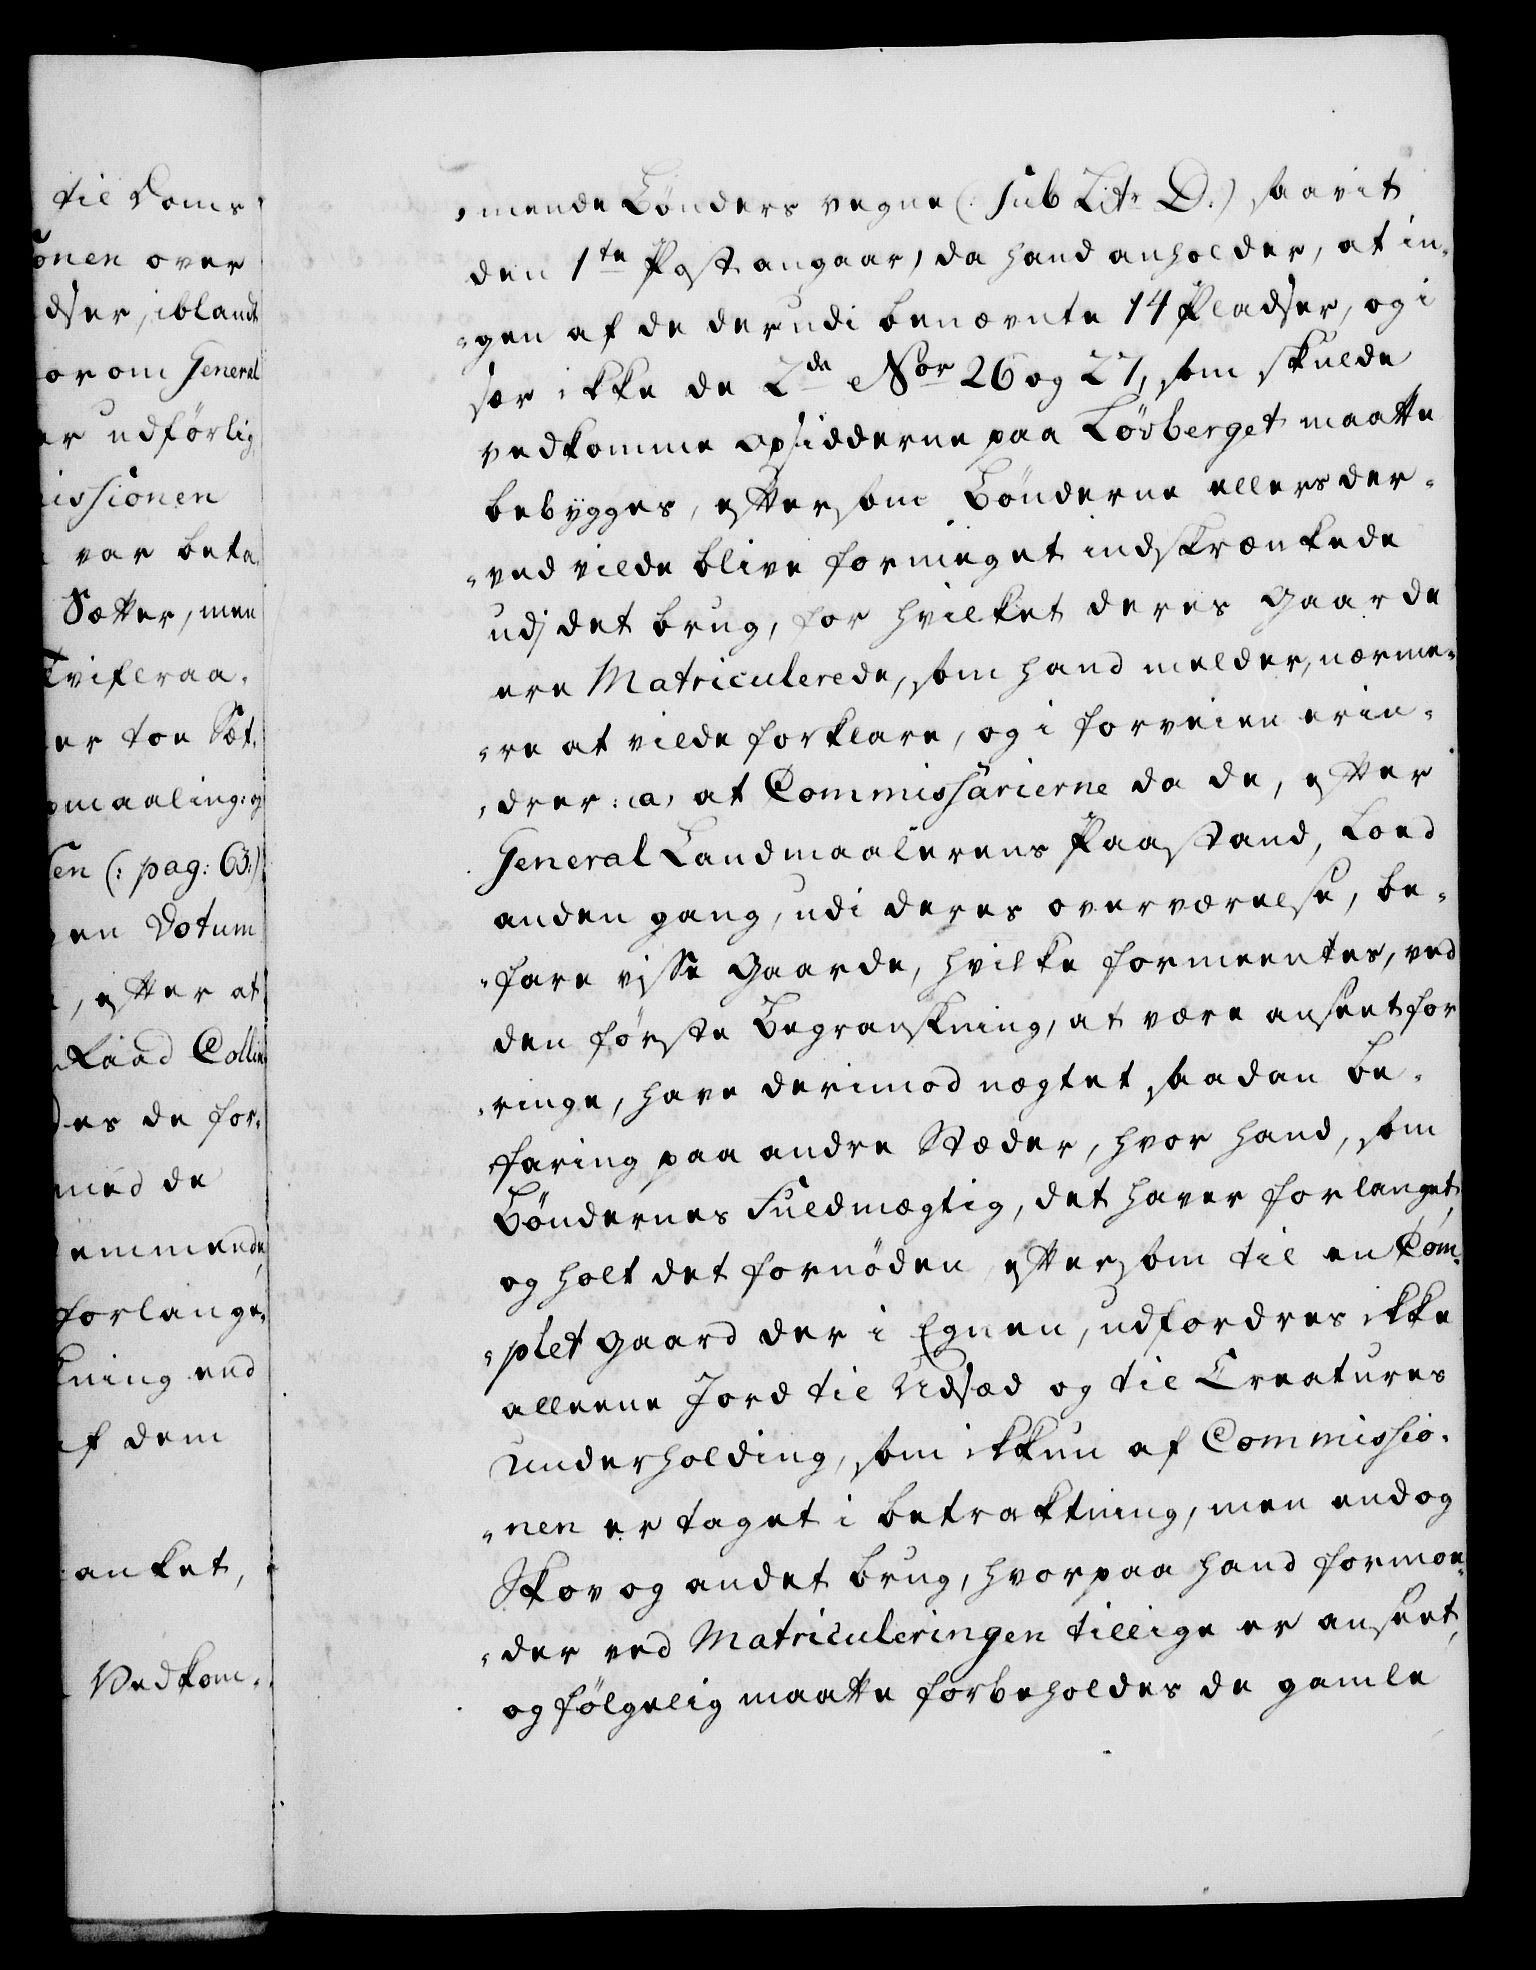 til Doms
onen over
dser, iblandt
or om General
er udförlig
issionen
var beta,
Sætter, men
Tvifleraa,
er toe Sæt,
pmaaling: og
sen (: pag: 63:)
en Votum
, efter at
Raad Collin
des de for,
med de
emmende,
forlange,
kning end
af dem
anket,
Vedkom,,
,mende Bönders vegne (: Sub Litr D.) saavit
den 1te Post angaar, da hand anholder, at in,
,gen af de derudi benævnte 14 Pladser, og i
sær ikke de 2de Nor 26 og 27, som skulde
vedkomme opsidderne paa Lövberget maatte
bebygges, eftersom Bönderne ellers der,
,ved vilde blive formeget indskrænkede
udj det brug, for hvilket deres Gaarde
ere Matriculerede, som hand melder, nærme,
,re at vilde forklare, og i forveien erin,
,drer: a, at Commissarierne da de, efter
General Landmaalerens Paastand, loed
anden gang, udi deres overværelse, be,
,fare visse Gaarde, hvilke formeentes, ved
den förste Begranskning, at være anseet for
,ringe, have derimod nægtet saadan be,
faring paa andre Stæder, hvor hand, som
Böndernes Fuldmægtig, det haver forlanget,
og holt det fornöden, eftersom til en Com,
,plet Gaard der i Egnen, udfordres ikke
alleene Jord til Udsæd og til Creatures
Underholding, som ikkun af Commissio,
,nen er taget i betraktning, men endog
Skov og andet brug, hvorpaa hand formoe,
,der ved Matriculeringen tillige er anseet,
og fölgelig maatte forbeholdes de gamle